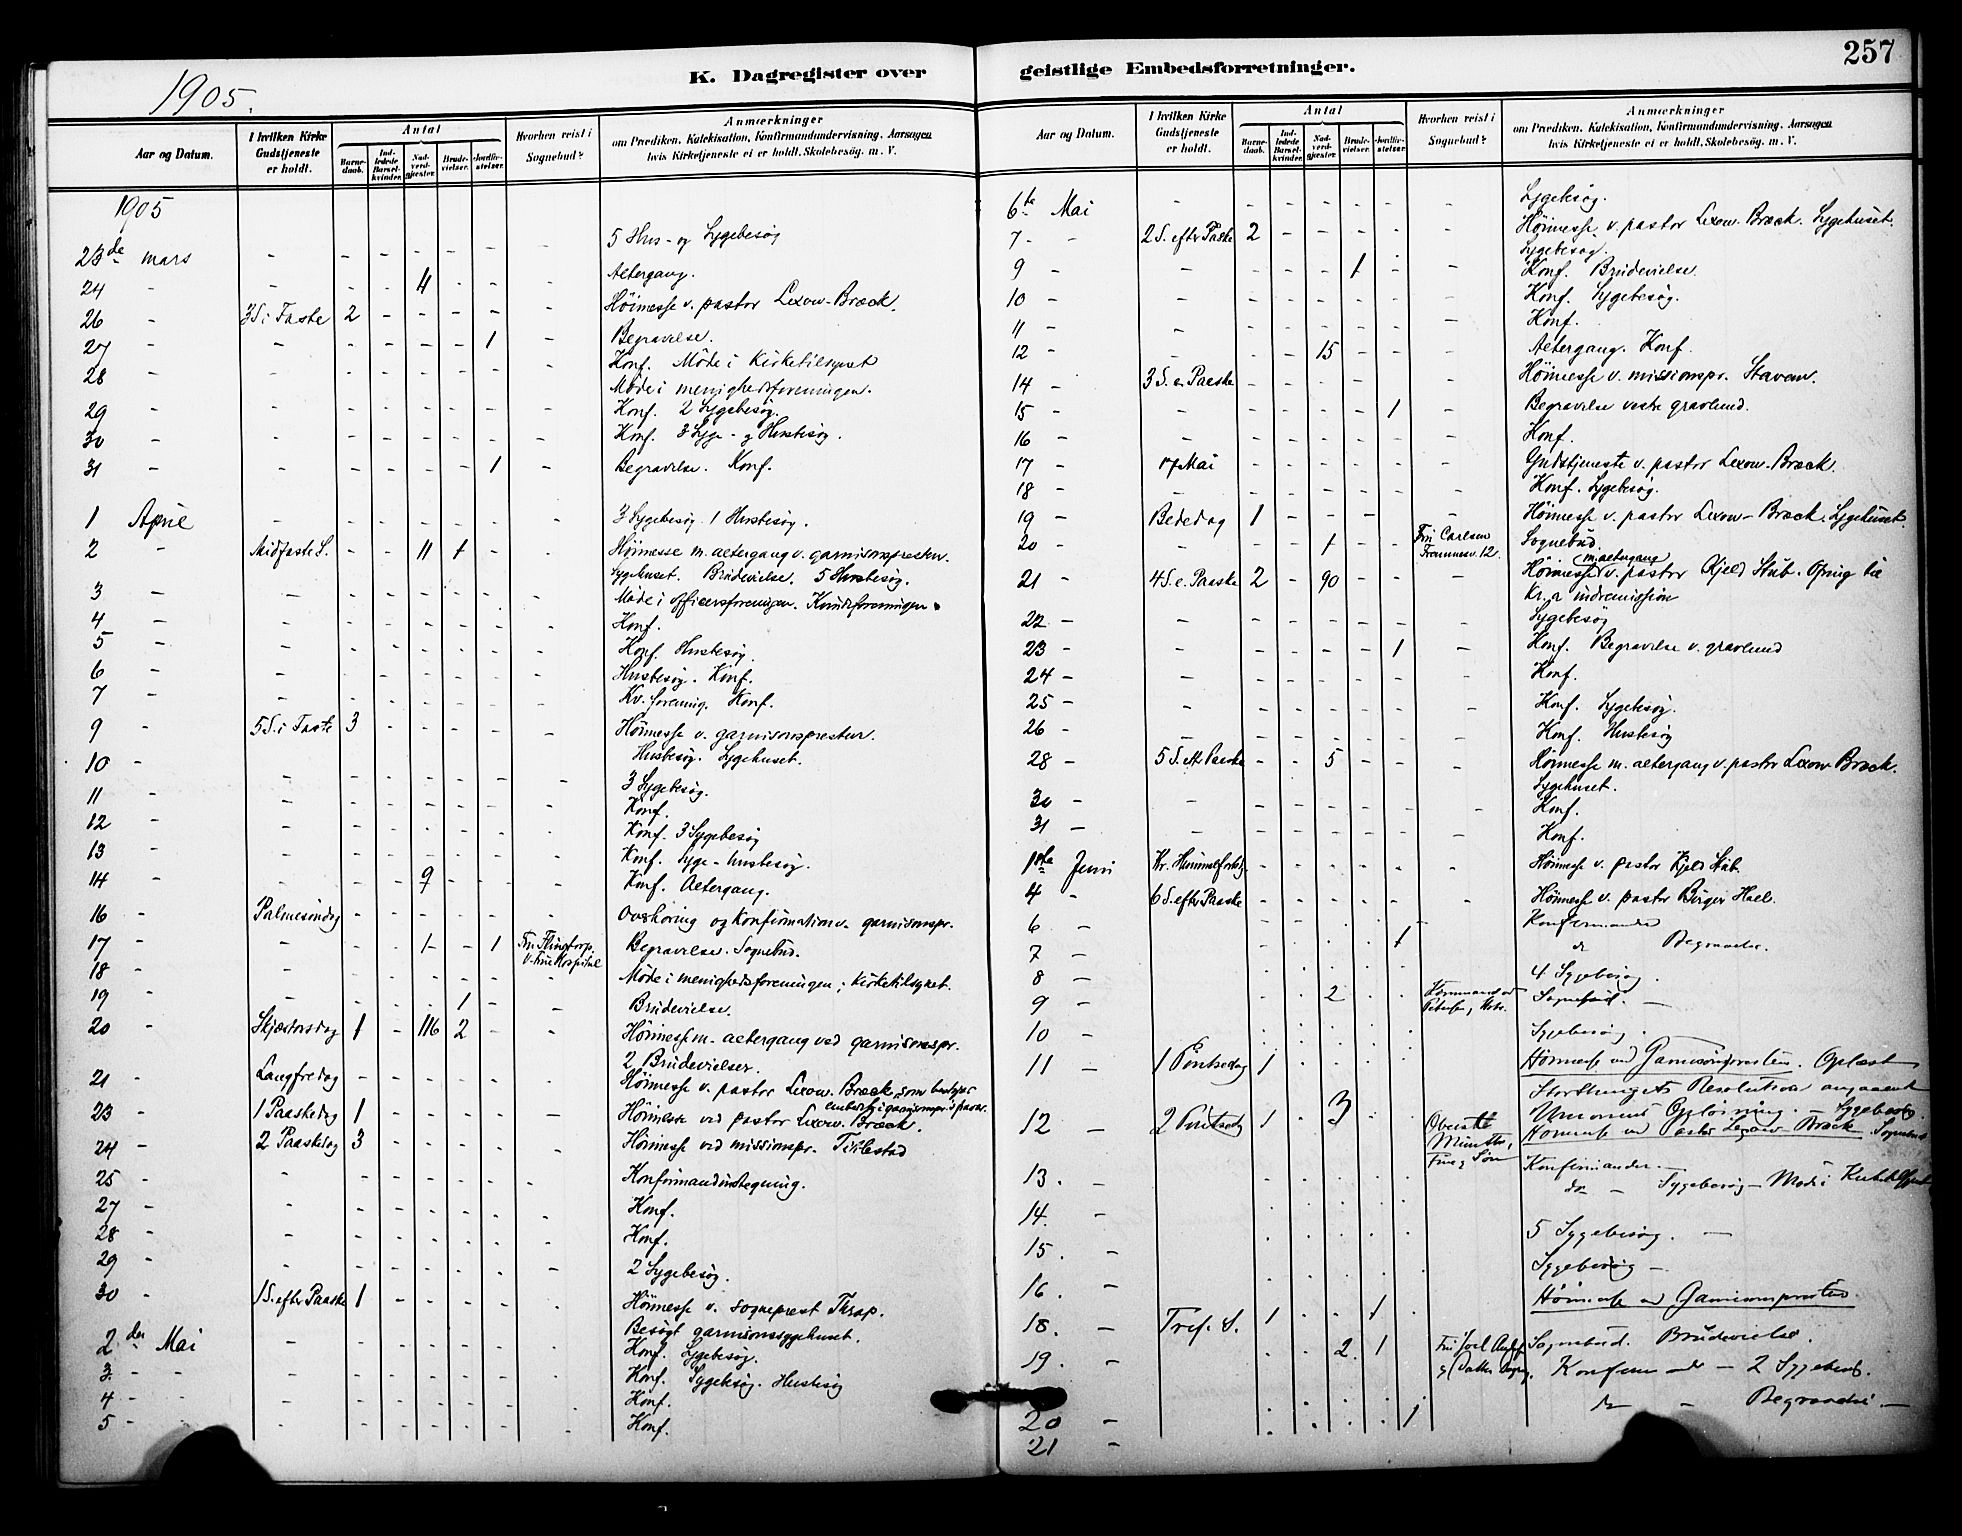 257
K. Dagregister over geistlige Embedsforretninger.
1905.
Aar og Datum.
I hvilken Kirke Gudstjeneste er holdt.
Antal
Barnedaab.
Indledede Barselkvinder.
Nadverdgjæster.
Brudevielser.
Jordfæstelser.
Hvorhen reist i Sognebud?
Anmærkninger
om Prædiken, Katekisation, Konfirmandundervisning, Aarsagen
hvis Kirketjeneste ei er holdt, Skolebesög, m. V.
1905
23de mars - - - - - - - 5 Hus- og Sygebesøg
24 - - - - 4 - - - Altergang.
26 - 3 S. i Faste 2 - - - - - Höimesse v. pastor Lexow-Bræck.
27 - - - - - - 1 - Begravelse.
28 - - - - - - - - Konf. Möde i Kirketilsynet
Möde i menighedsforeningen.
29 - - - - - - - - Konf. 2 Sygebesøg.
30 - - - - - - - - Konf. 3 Syge- og Husbesøg.
31 - - - - - - 1 - Begravelse. Konf.
1 April - - - - - - - 3 Sygebesøg. 1 Husbesøg.
2 - Midfaste S. - - 11 1 - - Höimesse m. altergang v. garnisonspresten.
Sygehuset. Brudevielse. 5 Husbesøg.
3 - - - - - - - - Möde i officersforeningen. Kvindeforeningen.
4 - - - - - - - - Konf.
5 - - - - - - - - Konf. Husbesøg.
6 - - - - - - - - Husbesøg. Konf.
7 - - - - - - - - Kv. forening. Konf.
9 - 5 S. i Faste 3 - - - - - Höimesse v. garnisonspresten.
Husbesøg. Sygehuset.
10 - - - - - - - - 3 Sygebesøg.
11 - - - - - - - - Konf.
12 - - - - - - - - Konf. 3 Sygebesøg
13 - - - - - - - - Konf. Syge- husbesøg.
14 - - - - 9 - - - Konf. Altergang.
16 - Palmesöndag - - - - - - Overhöring og Konfirmation v. garnisonspr.
17 - - - - 1 - 1 Fru Flingtorp, V. Frue Hospital Begravelse. Sognebud.
18 - - - - - - - - Möde i menighedsforeningen; Kirketilsynet.
19 - - - - - 1 - - Brudevielse.
20 - Skjærtorsdag 1 - 116 2 - - Höimesse m. altergang ved garnisonspr.
2 Brudevielser.
21 - Langfredag - - - - - Höimesse v. pastor Lexow-Bræck, som
23 - 1 Paaskedag 1 - - - - - Höimesse ved pastor Lexow-Bræck.
24 - 2 Paaskedag 3 - - - - - Höimesse ved missionspr. Tillestad
25 - - - - - - - - Konfirmandindtegning.
27 - - - - - - - - Konf.
28 - - - - - - - - Konf.
29 - - - - - - - - 2 Sygebesøg.
30 - 1 S. efter Paaske 1 - - - - - Höimesse v. sogneprest Thrap.
Besögt garnisonssygehuset.
2den Mai - - - - - - - Konf. Sygebesøg.
3 - - - - - - - - Konf. Sygebesøg. Husbesøg
4 - - - - - - - - Konf.
5 - - - - - - - - Konf.
Aar og Datum.
I hvilken Kirke Gudstjeneste er holdt.
Antal
Barnedaab.
Indledede Barselkvinder.
Nadverdgjæster.
Brudevielser.
Jordfæstelser.
Hvorhen reist i Sognebud?
Anmærkninger
om Prædiken, Katekisation, Konfirmandundervisning, Aarsagen
hvis Kirketjeneste ei er holdt, Skolebesøg, m. V.
6te Mai - - - - - - - Sygebesøg.
7 - 2 S. efter Paaske 2 - - - - - Höimesse v. pastor Lexow-Bræck. Sygehuset.
Sygebesøg.
9 - - - - - 1 - - Konf. Brudevielse.
10 - - - - - - - - Konf. Sygebesøg.
11 - - - - - - - - Konf.
12 - - - - 15 - - - Altergang. Konf.
14 - 3 S. e. Paaske - - - - - - Höimesse v. missionspr. Stavem.
15 - - - - - - 1 - Begravelse vestre gravlund.
16 - - - - - - - - Konf.
17 - 17 Mai - - - - - - Gudstjeneste v. pastor Lexow-Bræck.
18 - - - - - - - - Konf. Sygebesøg.
19 - Bededag 1 - - - - - Höimesse v. pastor Lexow-Bræck. Sygehuset.
20 - - - - 1 - - Fru Carlsen Fromnesv. 12. Sognebud
21 - 4 S. e. Paaske 2 - 90 - - - Höimesse m. altergang v. pastor Kjeld Stub. Ofring til
Kr.a indremission
22 - - - - - - - - Sygebesøg
23 - - - - - - 1 - Konf. Begravelse v. gravlund
24 - - - - - - - - Konf.
25 - - - - - - - - Konf. Sygebesøg.
26 - - - - - - - - Konf. Husbesøg
28 - 5 S. eft. Paaske - - 5 - - - Höimesse m. altergang v. pastor Lexow Bræck.
Sygehuset.
30 - - - - - - - - Konf.
31 - - - - - - - - Konf.
1ste Juni Kr. Himmelfartsdg. - - - - - - Höimesse v. pastor Kjeld Stub.
4 - 6 S. efter Paaske - - - - - - Höimesse v. pastor Birger Hall.
6 - Konfirmander
7 - 1 do Begravelse.
8 - 4 Sygebesøg.
9 2 Sognebud. -
10 - Sygebesøg.
11 - 1 Pintsedag 1 Höimesse ved Garnisonspresten. Oplæst
Storthingets Resolution angaaende
Unionens Oplösning. - Sygebesøg.
12 - 2 Pintsedg 1 . 3 Oberst Münster, Frue & Sön Höimesse ved Pastor Lexow-Bræck Sognebud
13. - Konfirmander. -
14. - do - Sygebesøg - Möde i Kirketilsynet
15. - 5 Sygebesøg. -
16. - Sygebesøg -
18. - Tref. S. 1 . . 1 . Höimesse ved Garnisonspresten.
19. - 2 1 Sognebud. Brudevielse.
20 - 1 Konfirmander - 2 Sygebesøg.
21 - do - Begravelse. -